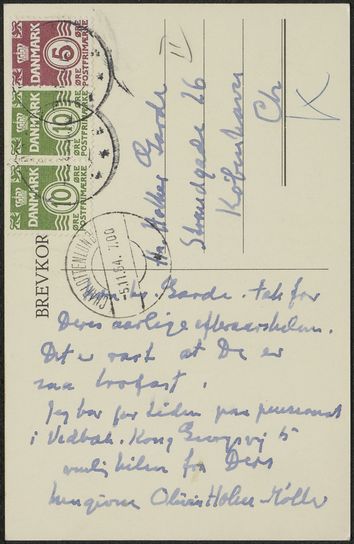 DANMARK 5 ØRE POSTFRIMÆRKE
DANMARK 10 ØRE POSTFRIMÆRKE
DANMARK 10 ØRE POSTFRIMÆRKE
BREVKOR
CHARLOTTENLUND
-5.11.64. 7.00
Hr. Holger Garde
Strandgade 26
København
Ch
K
Garde. Tak for
Deres aarlige efteraarshilsen.
Det er rart at De er
saa trofast.
Jeg bor for tiden paa pensionat
i Vedbæk. Kong Georgsvej 5
venlig hilsen fra Deres
hengivne Olivia Holm-Møller